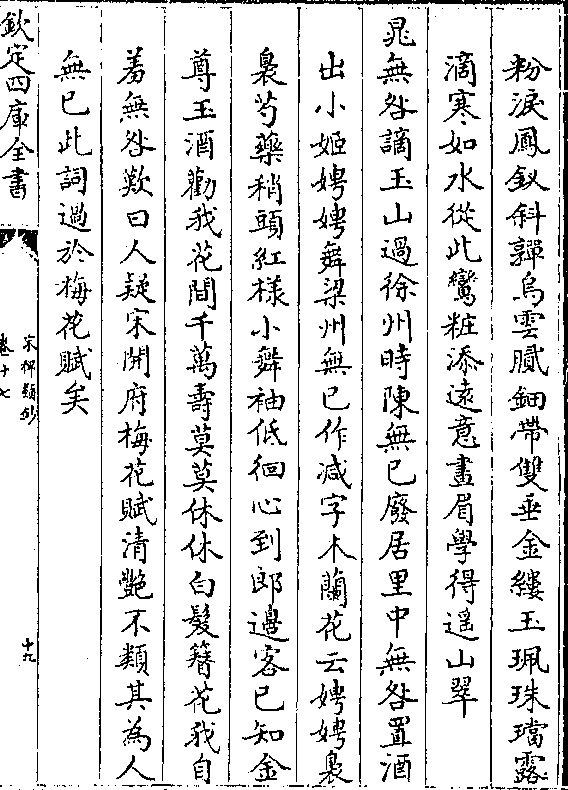 粉淚鳳釵斜嚲烏雲膩鈿帶雙垂金縷玉珮珠璫露
滴寒如水從此鸞粧添遠意畫眉學得遥山翠
晁無咎謫玉山過徐州時陳無已廢居里中無咎置酒
出小姬娉娉舞梁州無已作减字木蘭花云娉娉裊
裊芍藥稍頭紅樣小舞袖低徊心到郎邊客已知金
尊玉酒勸我花間千萬壽莫莫休休白髮簪花我自
羞無咎歎曰人疑宋開府梅花賦清艷不類其為人
無已此詞過於梅花賦矣
欽定四庫全書
宋稗類鈔
卷十七
十九